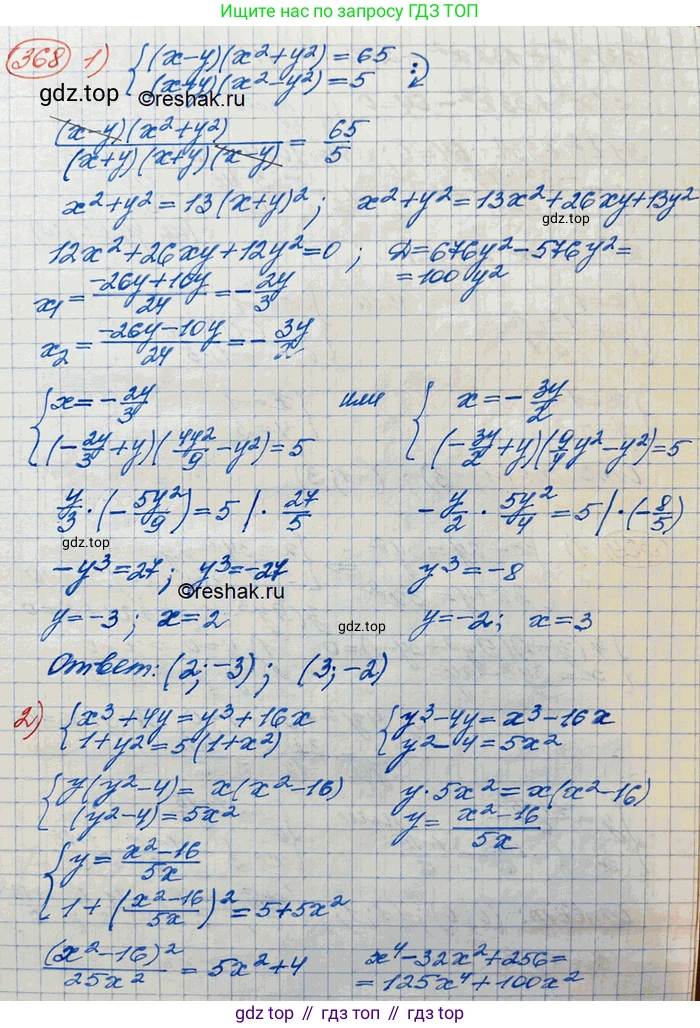 Ищите по запросу ГДЗ ТОП
368 1) { (x-y)(x²+y²) = 65
(x+y)(x²-y²) = 5 :
gdz.top ©reshak.ru
(x-y)(x²+y²) / (x+y)(x+y)(x-y) = 65/5
x²+y² = 13(x+y)²; x²+y² = 13x²+26xy+13y²
gdz.top
12x²+26xy+12y²=0; D=676y²-576y²=
=100y²
x₁ = (-26y+10y)/24 = -2y/3
x₂ = (-26y-10y)/24 = -3y/
{ x = -2y/3 или { x = -3y/2
(-2y/3+y)(4y²/9-y²)=5 (-3y/2+y)(9/4y²-y²)=5
y/3·(-5y²/9)=5 |· 27/5 -y/2·5y²/4=5 |·(-8/5)
gdz.top
-y³=27; y³=-27 y³=-8
©reshak.ru
y=-3; x=2 y=-2; x=3
gdz.top
Ответ: (2;-3); (3;-2)
2) { x³+4y=y³+16x { y³-4y=x³-16x
1+y²=5(1+x²) y²-4=5x²
{ y(y²-4)= x(x²-16) y·5x²=x(x²-16)
(y²-4)=5x² y= (x²-16)/5x
{ y= (x²-16)/5x
1+((x²-16)/5x)²=5+5x²
(x²-16)²/25x² = 5x²+4 x⁴-32x²+256=
=125x⁴+100x²
gdz.top // gdz.top // gdz.top // gdz.top